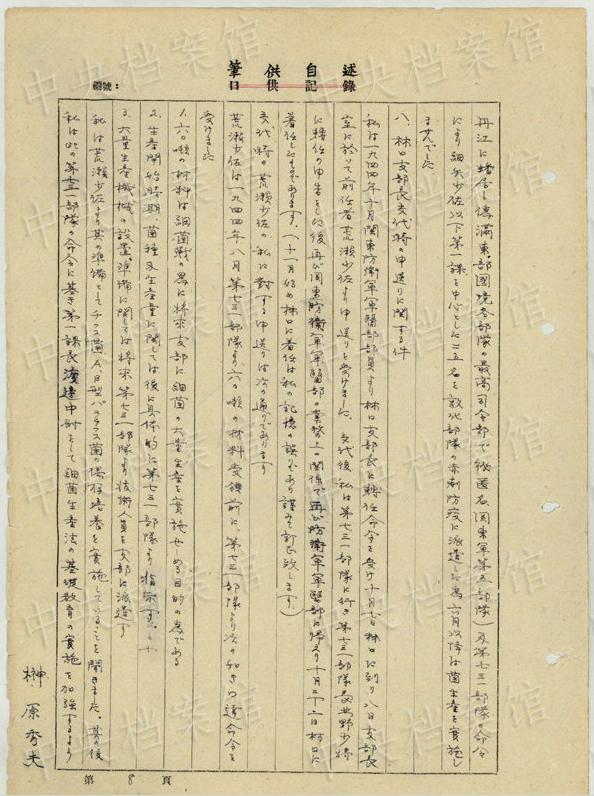 筆供自述
口供記錄
編號：
丹江に蟠居し偽満東部国境各部隊の最高司令部で秘匿名関東軍第五部隊）及第七三一部隊の命令
により細矢少佐以下第一課を中心とした二五名を敦化部隊の赤痢防疫に派遣した為六月以降は菌生産を実施し
ませんでした
八、林口支部長交代時の申送りに関する件
私は一九四四年十月関東防衛軍軍医部部員より林口支部長に転任命令を受け十月七日林口に到り八日支部長
室に於いて前任者荒瀬少佐より申送りを受けました。交代後私は第七三一部隊に行き第七三一部隊長北野少将
に転任の申告をした後再び関東防衛軍軍医部の業務上の関係で再び防衛軍軍医部に帰えり十月二十二日林口に
着任したものであります。（十一月始め林口に着任は私の記憶の誤りであり謹みて訂正致します）
交代時の荒瀬少佐の私に対する申送りは次の通りであります
荒瀬少佐は一九四四年八月第七三一部隊より六〇噸の材料受領前に、第七三一部隊より次の如きの達命令を
受けました
1. 六〇噸の材料は細菌戦の為に将来支部に細菌の大量生産を実施せしめる目的の為である
2. 生産開始時期、菌種及生産量に関しては後に具体的に第七三一部隊より指示す
3. 大量生産機械の設置、準備に関しては将来第七三一部隊より技術人員を支部に派遣す
私は荒瀬少佐より其の準備としてチフス菌A、B型パラチフス菌の保存培養を実施していることを聞きました。其の後
私は此の第七三一部隊の命令に基き第一課長渡辺中尉をして細菌生産法の基礎教育の実施を加強するより
榊原秀夫
第 8 頁
中央档案馆